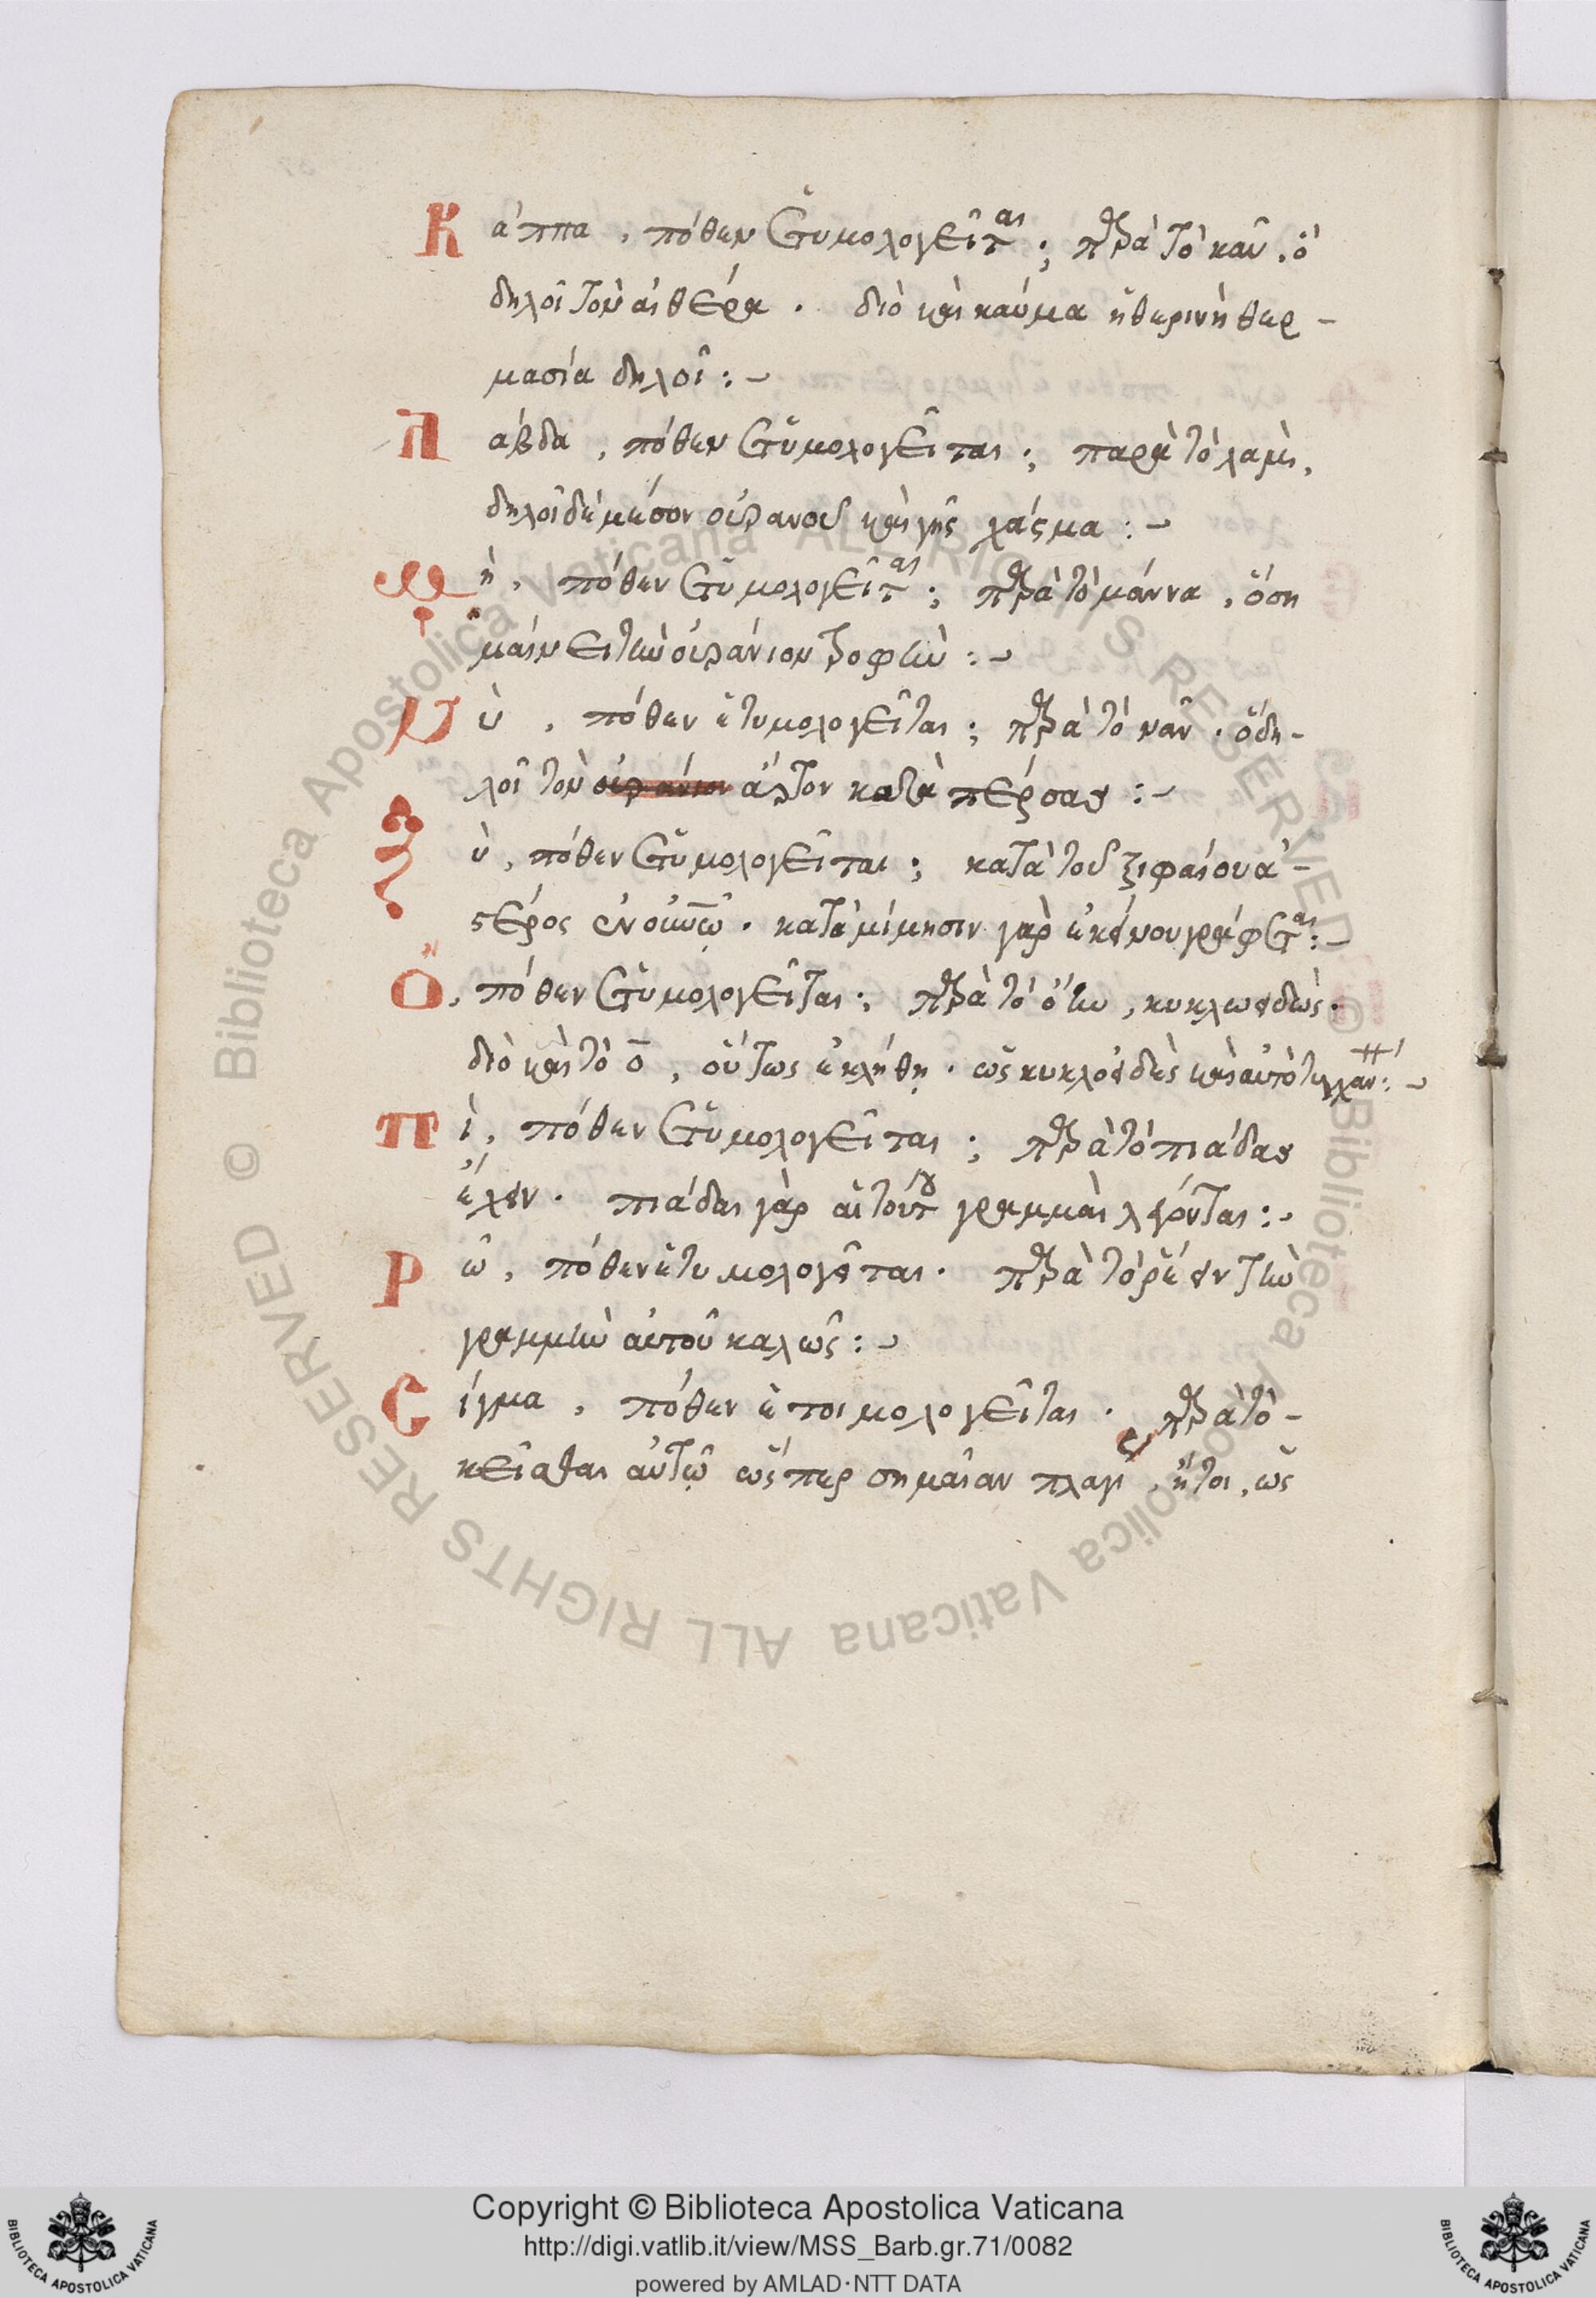 Κάππα, πόθεν ἐτυμολογεῖται; παρὰ τὸ καῦ, ὃ
δηλοῖ τὸν αἰθέρα. διὸ καὶ καύμα ἡ θερινὴ θερ-
μασία δηλοῖ:~
Λάβδα, πόθεν ἐτυμολογεῖται; παρὰ τὸ λαμὶ,
δηλοῖ δὲ μέσον οὐρανοῦ καὶ γῆς χάσμα:~
Μὴ, πόθεν ἐτυμολογεῖται; παρὰ τὸ μάννα, ὃ ση
μαίνει τὴν οὐράνιον τροφὴν:~
Νὺ, πόθεν ἐτυμολογεῖται; παρὰ τὸ ναῦ. ὃ δη-
λοῖ τὸν οὐράνιον ἄρτον κατὰ πέρσας:~
Ξὺ, πόθεν ἐτυμολογεῖται; κατὰ τοῦ ξιφαίου ἀ-
στέρος ἐν οὐνῶ. κατὰ μίμησιν γὰρ ἐκείνου γράφεται:~
Ο, πόθεν ἐτυμολογεῖται; παρὰ τὸ κυκλωειδῶς.
διὸ καὶ τὸ ο, οὕτως ἐκλήθη. ὡς κυκλοειδὲς καὶ αὐτὸ τυγχάν:~
Πὶ, πόθεν ἐτυμολογεῖται; παρὰ τὸ πιάδας
ἔχειν. πιάδαι γὰρ αἱ τούτου γραμμαὶ λέγονται:~
Ρῶ, πόθεν ἐτυμολογεῖται. παρὰ τὸ ῥέειν τὴν
γραμμὴν αὐτοῦ καλῶς:~
Σίγμα, πόθεν ἐτοιμολογεῖται. παρὰ τὸ-
κεῖσθαι αὐτῶ ὥσπερ σημαίαν πλαγι, ἤτοι, ὡς
Copyright © Biblioteca Apostolica Vaticana
http://digi.vatlib.it/view/MSS_Barb.gr.71/0082
powered by AMLAD·NTT DATA
BIBLIOTECA APOSTOLICA VATICANA
BIBLIOTECA APOSTOLICA VATICANA
© Biblioteca Apostolica Vaticana ALL RIGHTS RESERVED
© Biblioteca Apostolica Vaticana ALL RIGHTS RESERVED